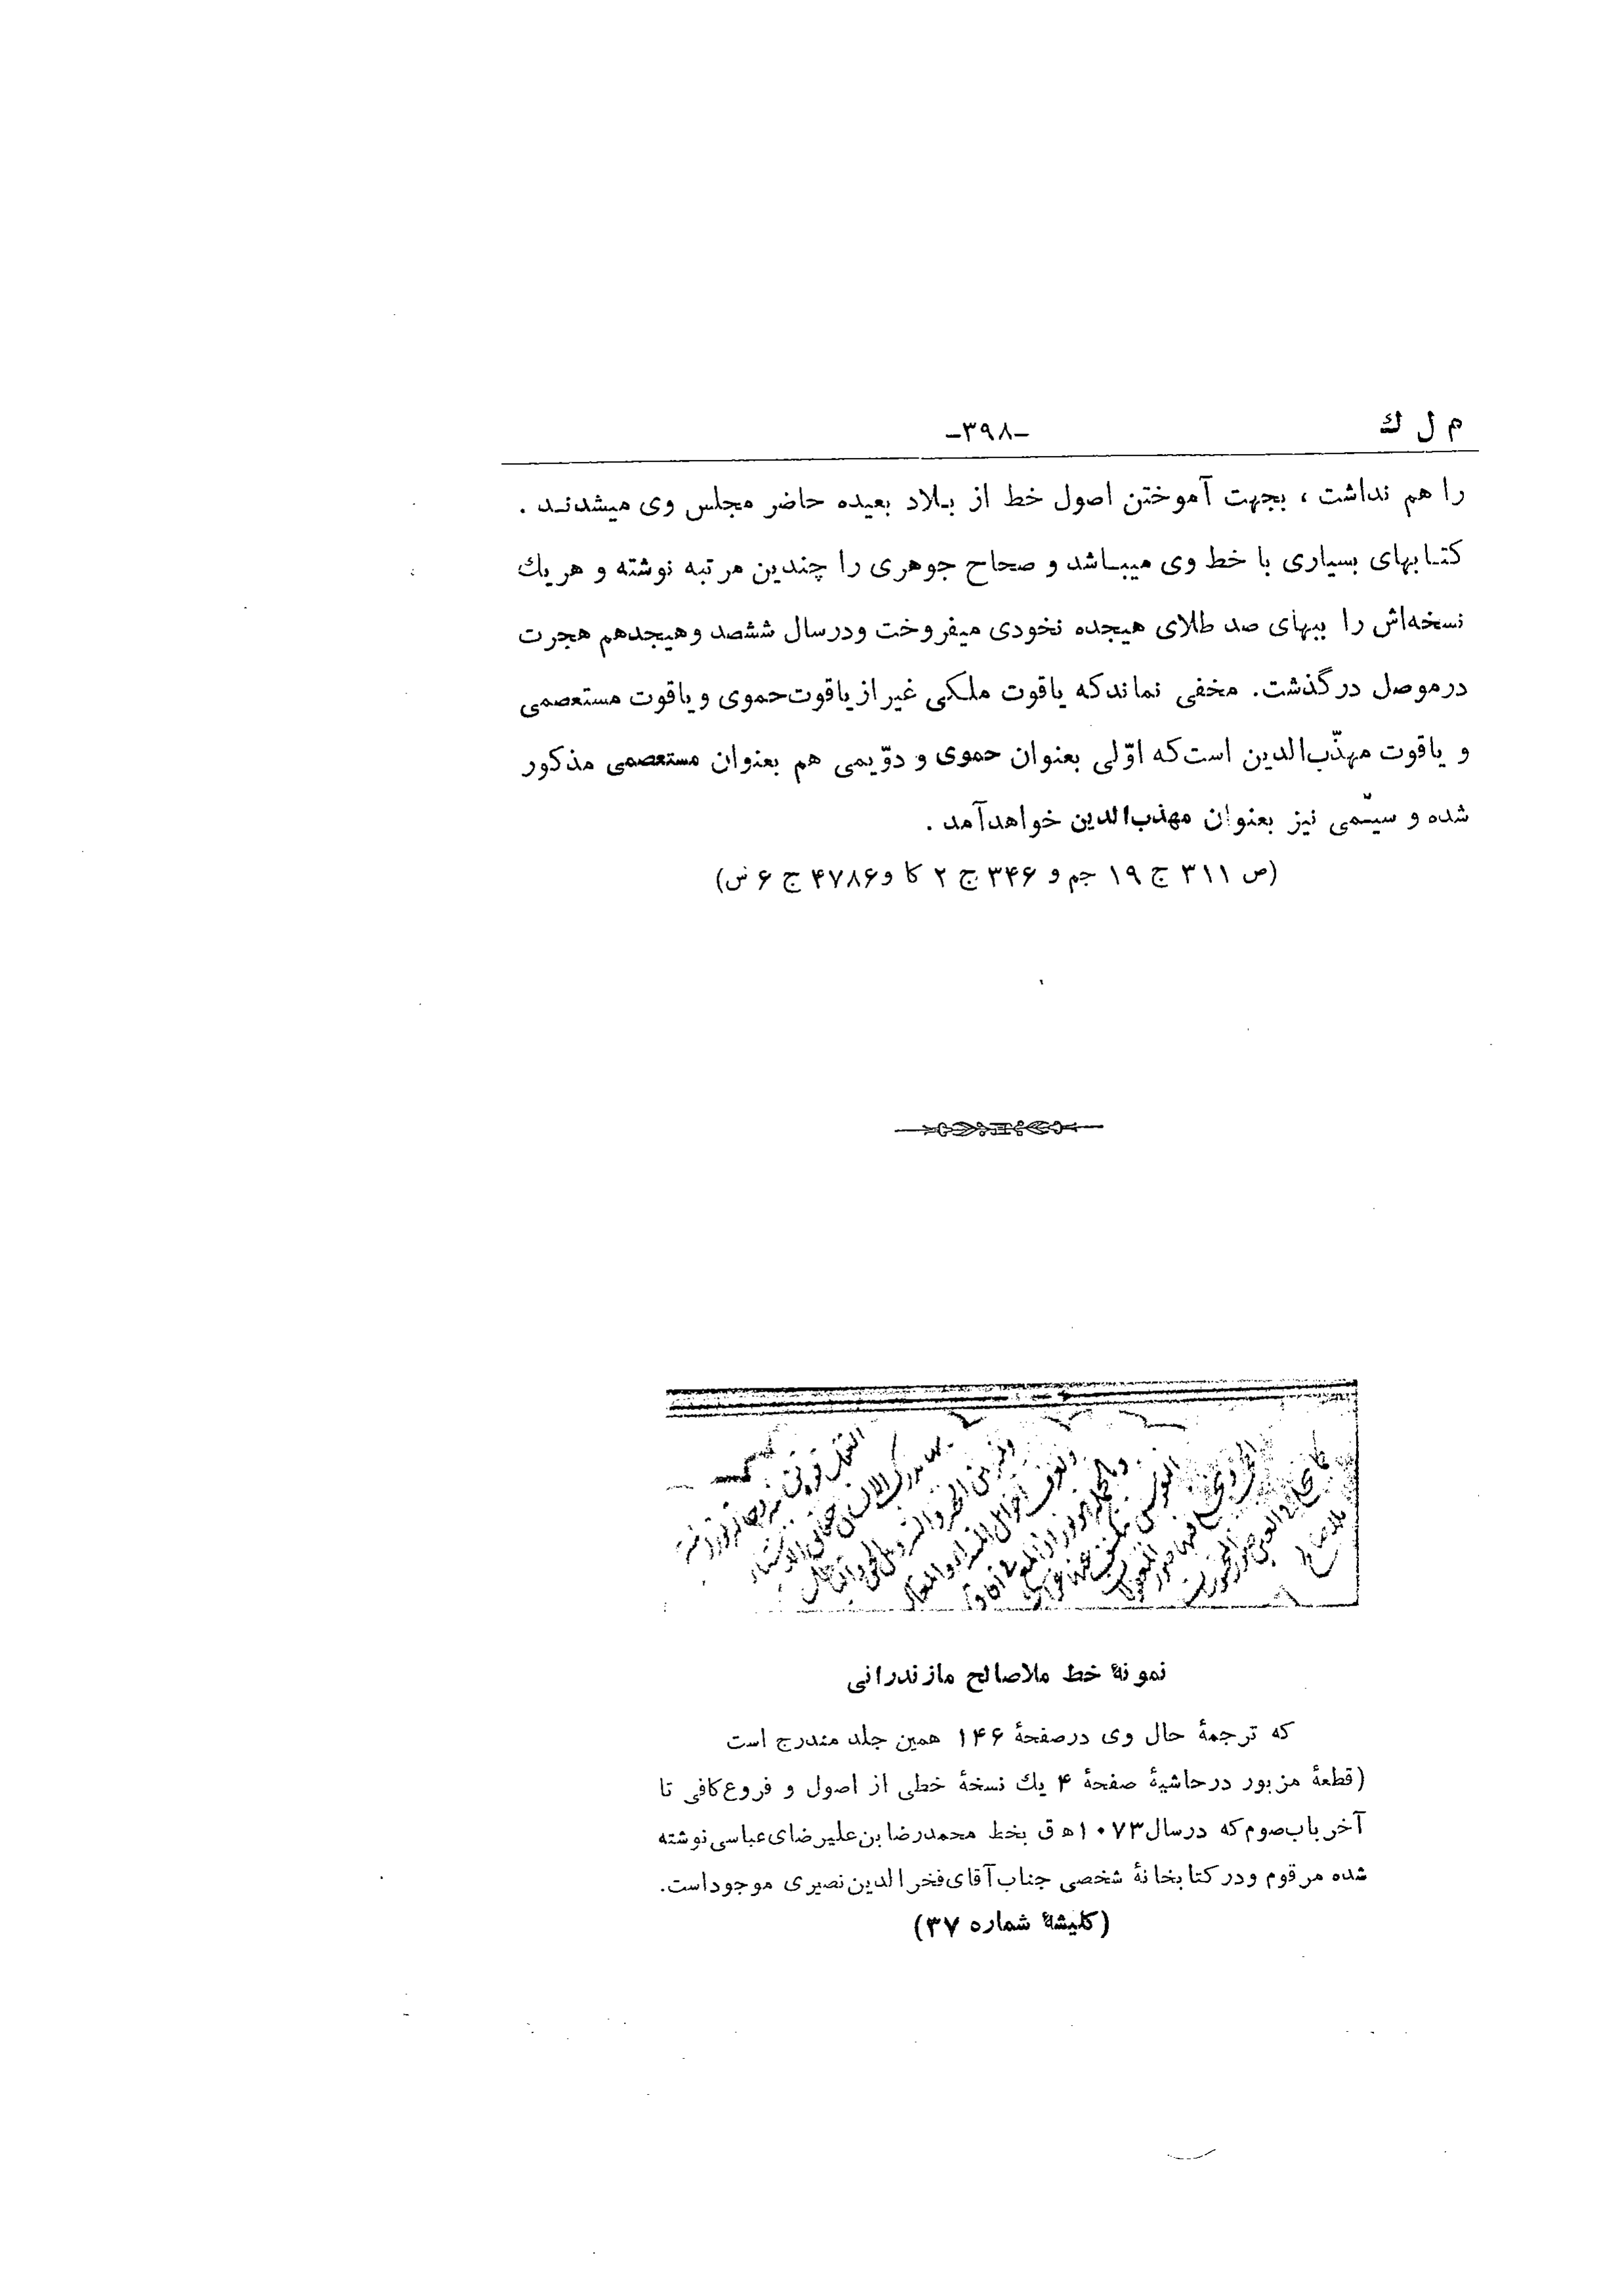 م ل ك
-۳۹۸-
را هم نداشت ، بجهت آموختن اصول خط از بـلاد بعیده حاضر مجلس وی میشدنـد .
کتـابهای بسیاری با خط وی میبـاشد و صحاح جوهری را چندین مرتبه نوشته و هریك
نسخه‌اش را ببهای صد طلای هیجده نخودی میفروخت ودرسال ششصد وهیجدهم هجرت
درموصل درگذشت. مخفی نماندکه یاقوت ملکی غیر از یاقوت‌حموی ویاقوت مستعصمی
و یاقوت مهذّب‌الدین است‌که اوّلی بعنوان حموی و دوّیمی هم بعنوان مستعصمی مذکور
شده و سیّمی نیز بعنوان مهذب‌الدین خواهدآمد .
(ص ۳۱۱ ج ۱۹ جم و ۳۴۶ ج ۲ کا و۴۷۸۶ ج ۶ س)
نمونهٔ خط ملاصالح مازندرانی
که ترجمهٔ حال وی درصفحهٔ ۱۴۶ همین جلد مندرج است
(قطعهٔ مزبور درحاشیهٔ صفحهٔ ۴ یك نسخهٔ خطی از اصول و فروع‌کافی تا
آخر باب‌صوم‌که درسال۱۰۷۳ه‍ ق بخط محمدرضا بن‌علیرضای‌عباسی‌نوشته
شده مرقوم ودرکتابخانهٔ شخصی جناب‌آقای‌فخرالدین‌نصیری موجوداست.
(کلیشهٔ شماره ۳۷)